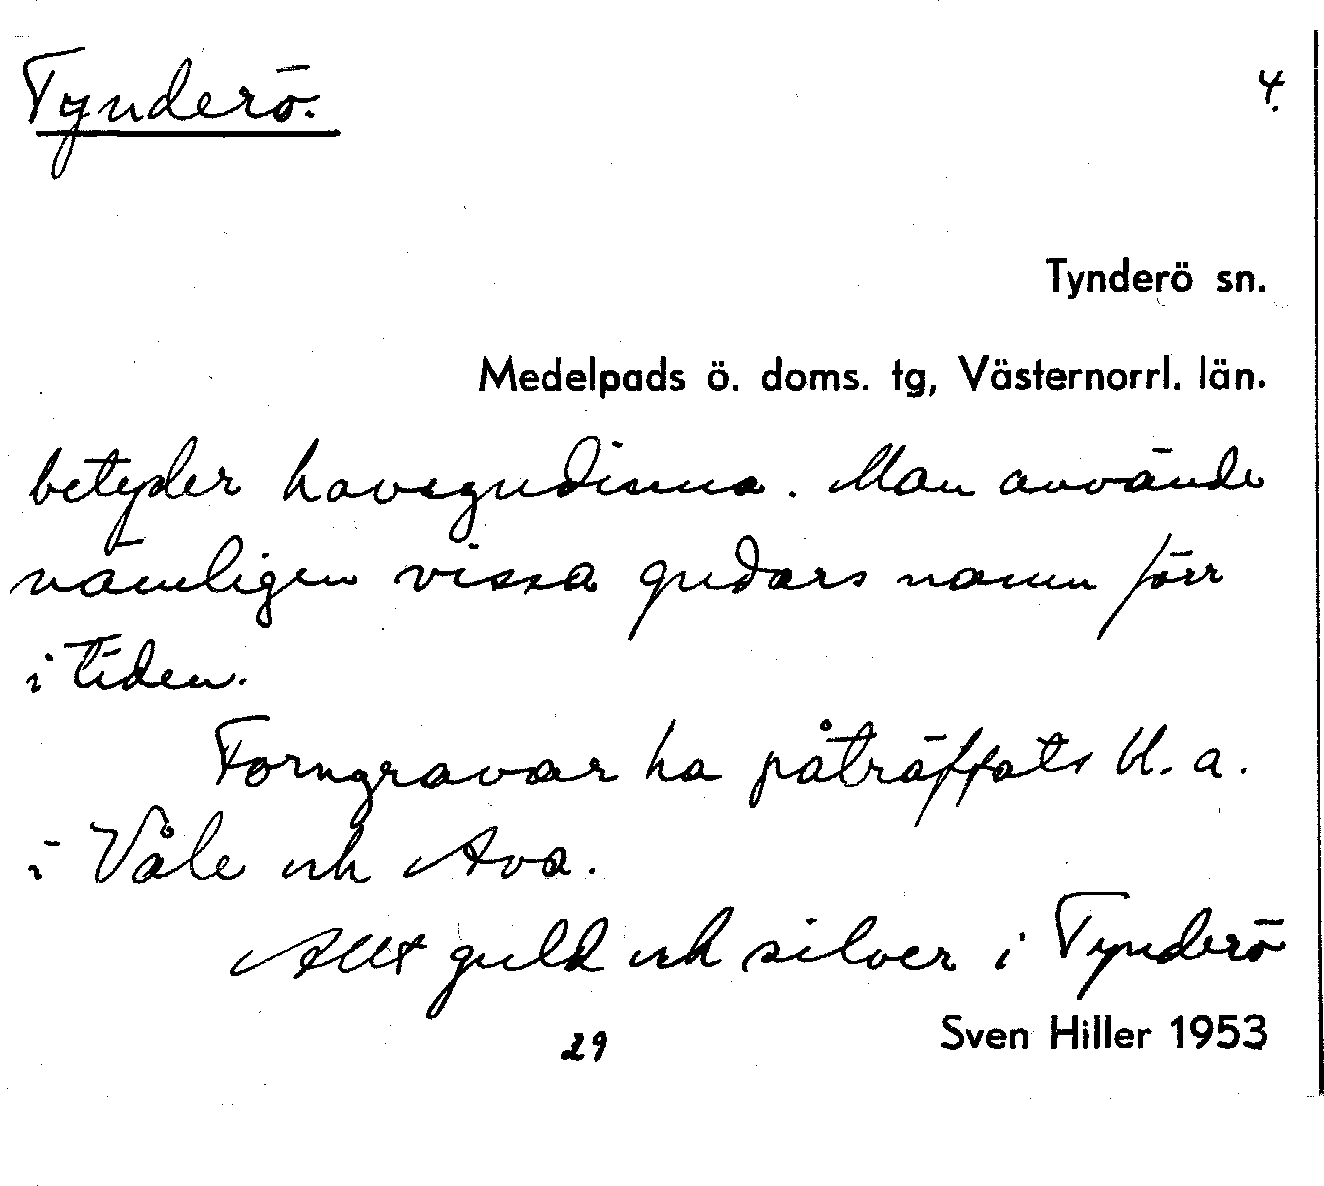 Tynderö.
4.
Tynderö sn.
Medelpads ö. doms. tg, Västernorrl. län.
betyder havsgudinna. Man använde
nämligen vissa gudars namn förr
i tiden.
Forngravar ha påträffats bl. a.
i Våle och Ava.
Allt guld och silver i Tynderö
29
Sven Hiller 1953